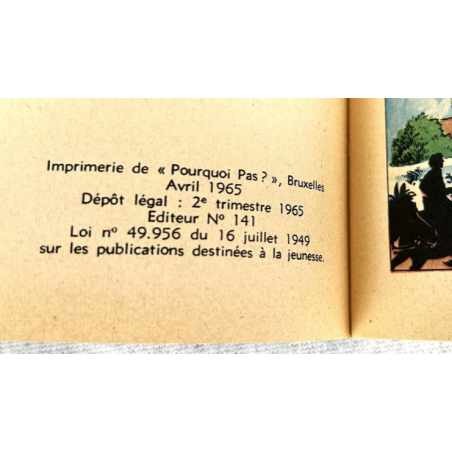 Imprimerie de « Pourquoi Pas ? », Bruxelles
Avril 1965
Dépôt légal : 2e trimestre 1965
Editeur N° 141
Loi n° 49.956 du 16 juillet 1949
sur les publications destinées à la jeunesse.